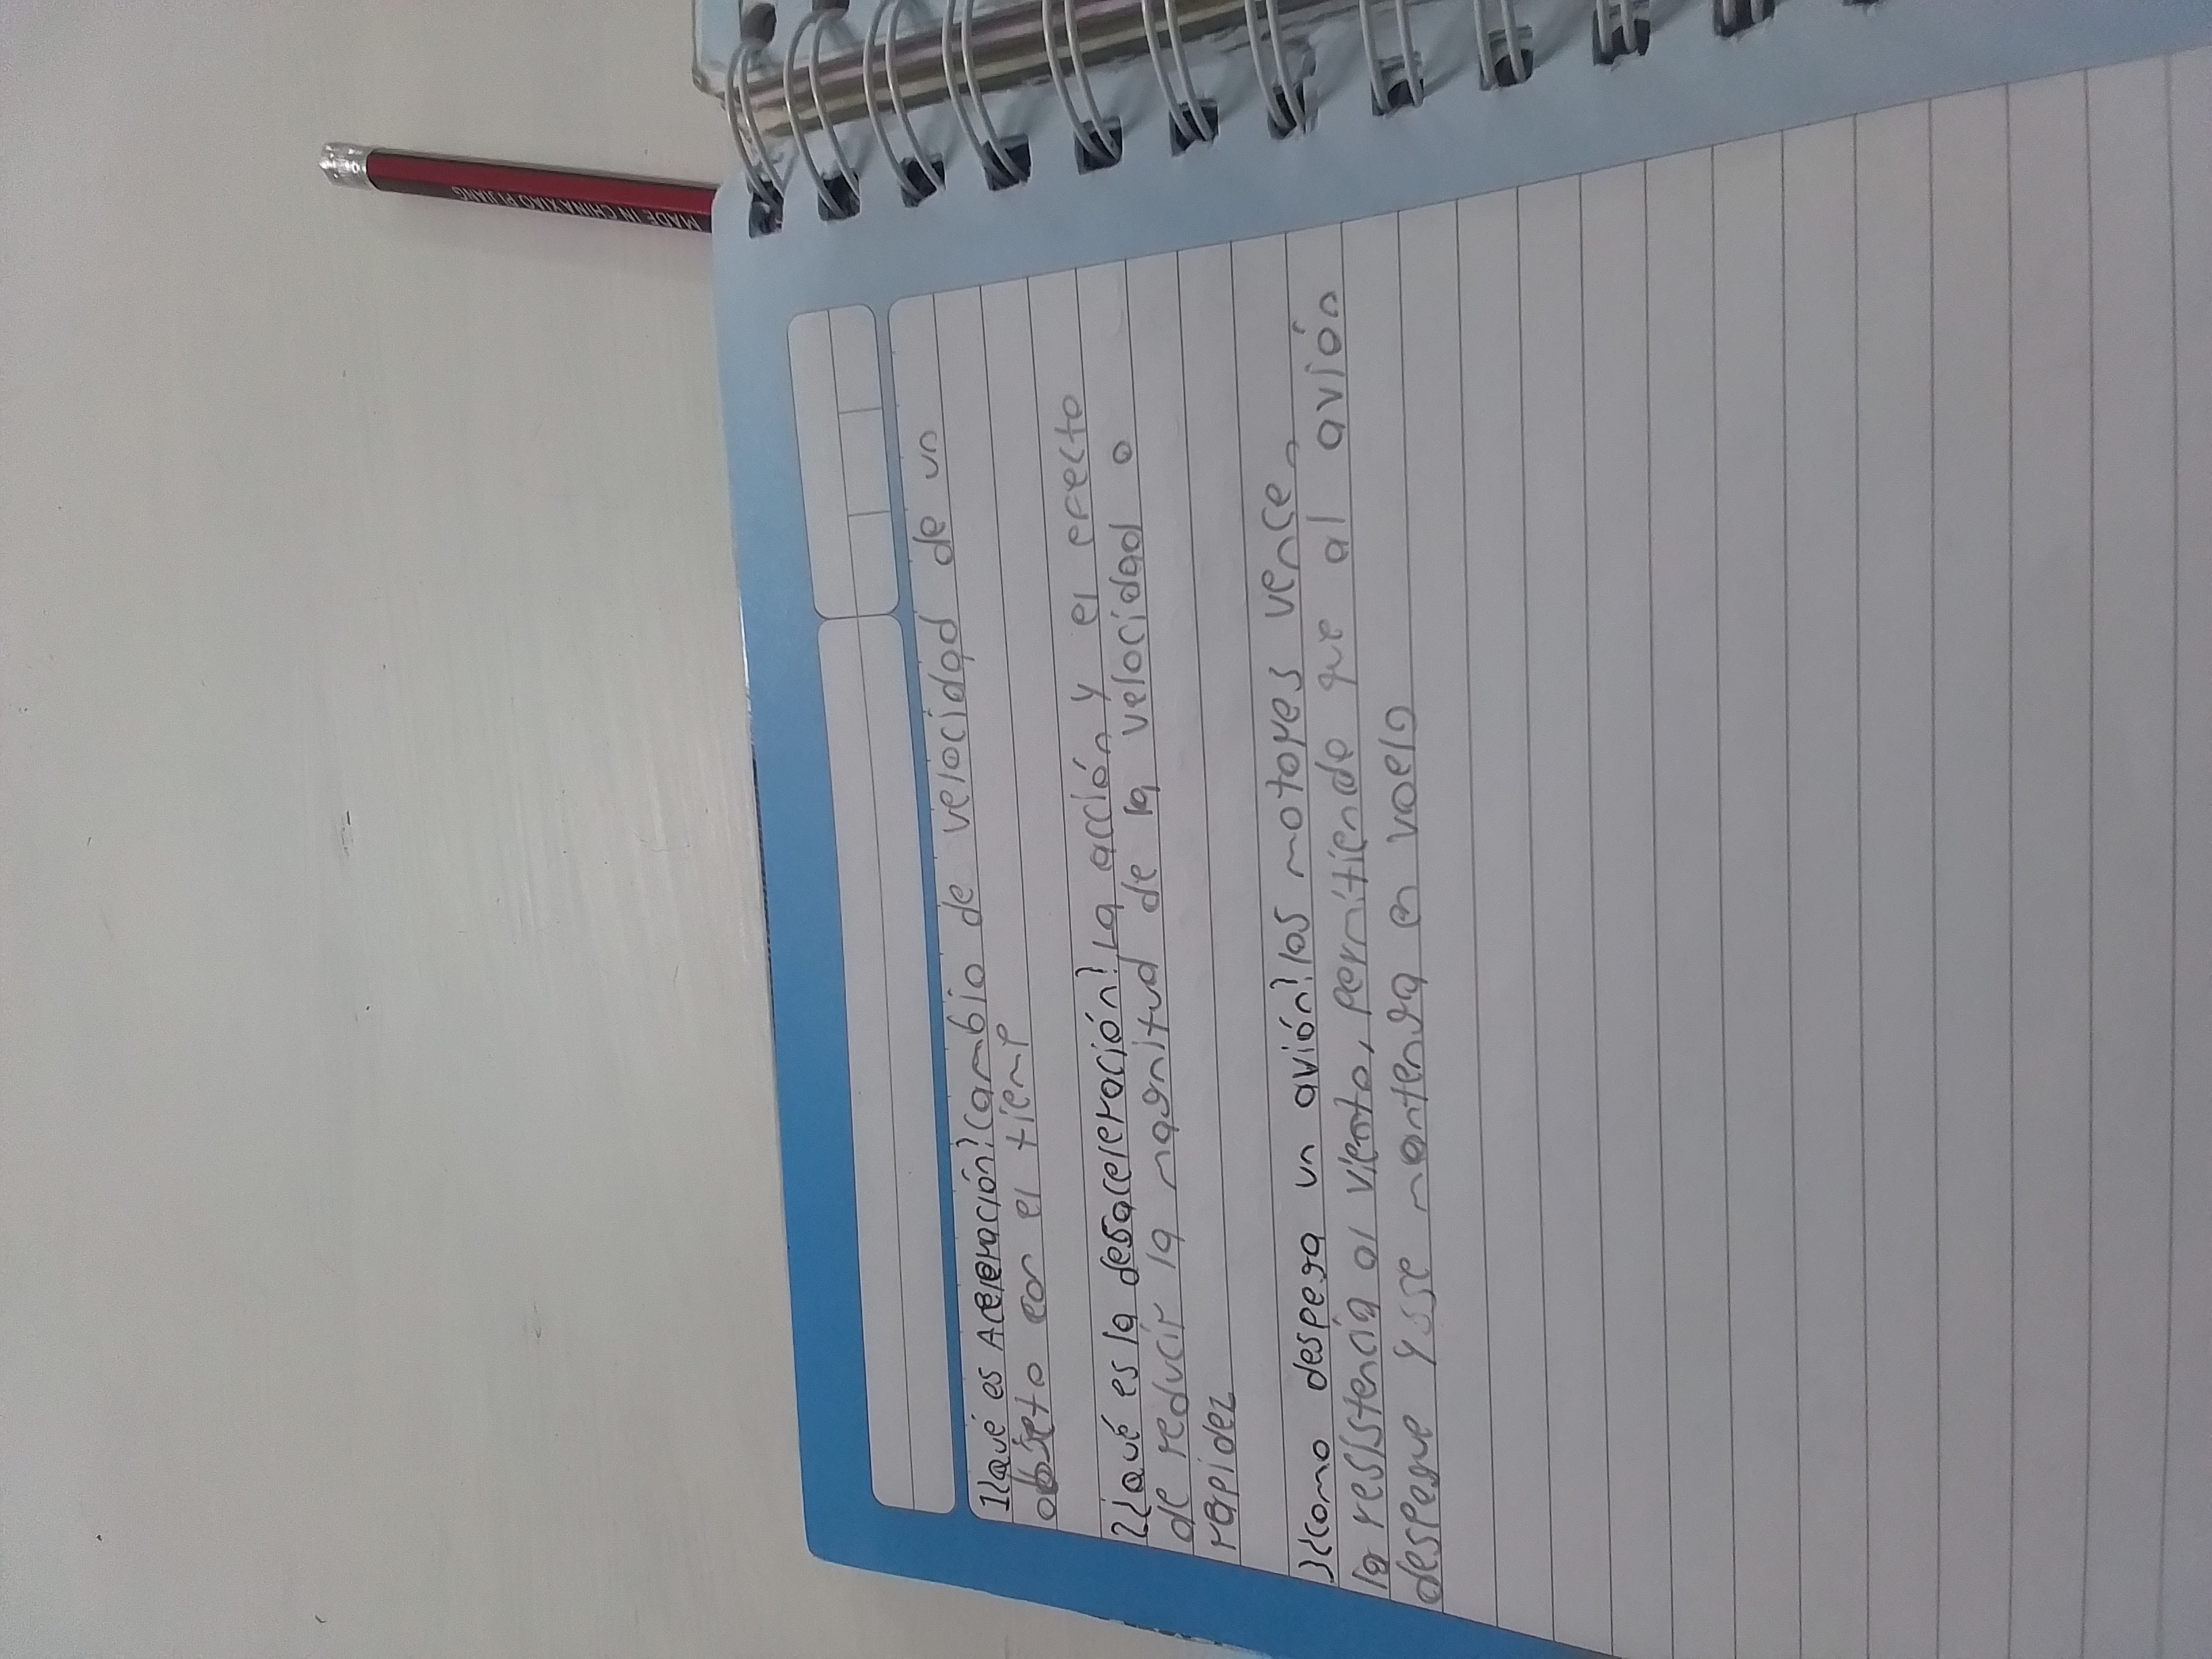 1¿Qué es Aceleración?Cambio de velocidad de un
objeto con el tiemp
2¿Qué es la desaceleración?La acción y el efecto
de reducir la magnitud de la velocidad o
rapidez
3¿Como despega un avión?los motores vence
la resistencia al viento, permitiendo que al avión
despegue y se mantenga en voelo
MADE IN CHINA XIAO PIJIANG